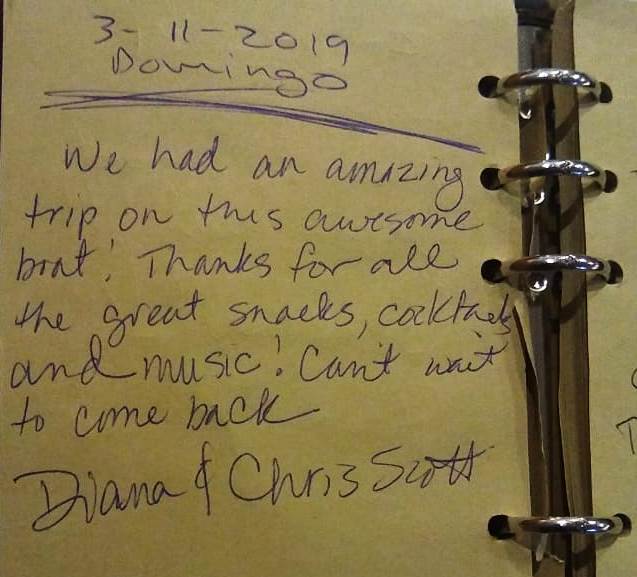 3-11-2019
Domingo
We had an amazing
trip on this awesome
boat! Thanks for all
the great snacks, cocktails
and music! Can't wait
to come back
Diana & Chris Scott